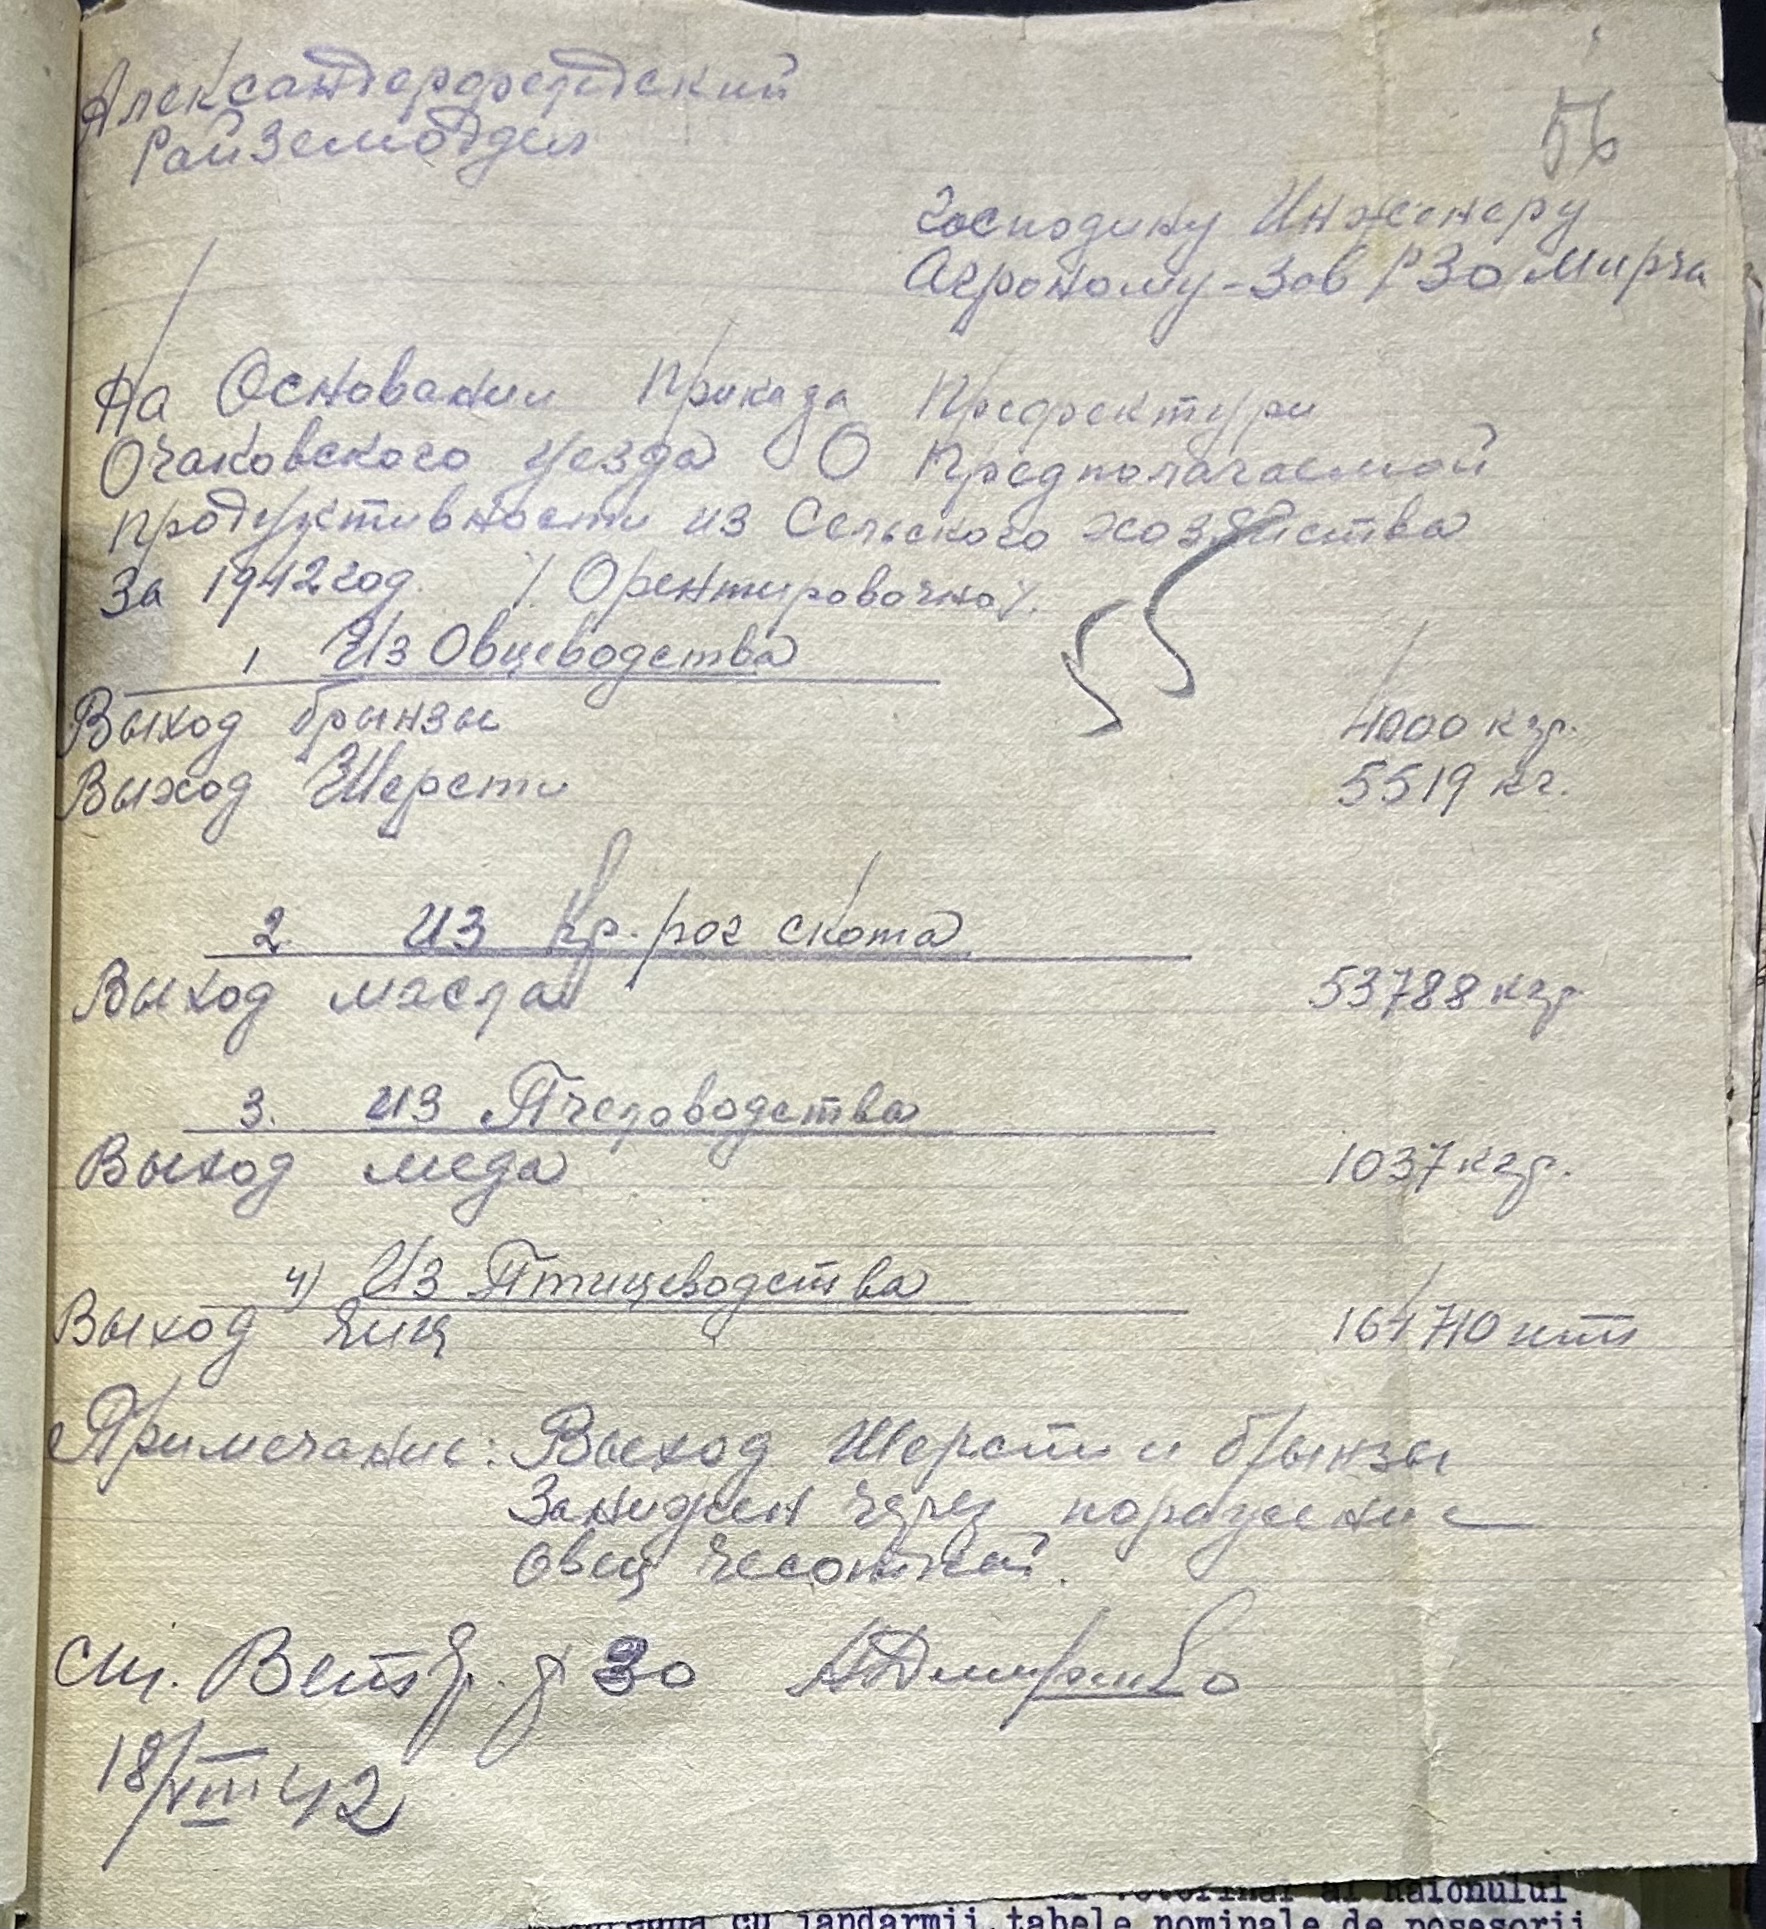 Александерфельдский
Райземотдел
56
Господину Инженеру
Агроному-Зав РЗО Мирча
На Основании Приказа Префектури
Очаковского уезда О Предполагаемой
продуктивности из Сельского хозяйства
За 1942 год. /Орентировочно/.
1 Из Овцеводства
Выход брынзы 4000 кгр.
Выход Шерсти 5519 кг.
2. из Кр. рог скота
Выход масла 53788 кгр
3. из Пчеловодства
Выход меда 1037 кгр.
4) Из Птицеводства
Выход Яиц 164710 шт
Примечание: Выход Шерсти и брынзы
Занижен через поражение
овец чесоткой.
Ст. Вет Вр. РЗО
18/VIII 42
al Raionului
cu jandarmii, tabele nominale de posesorii